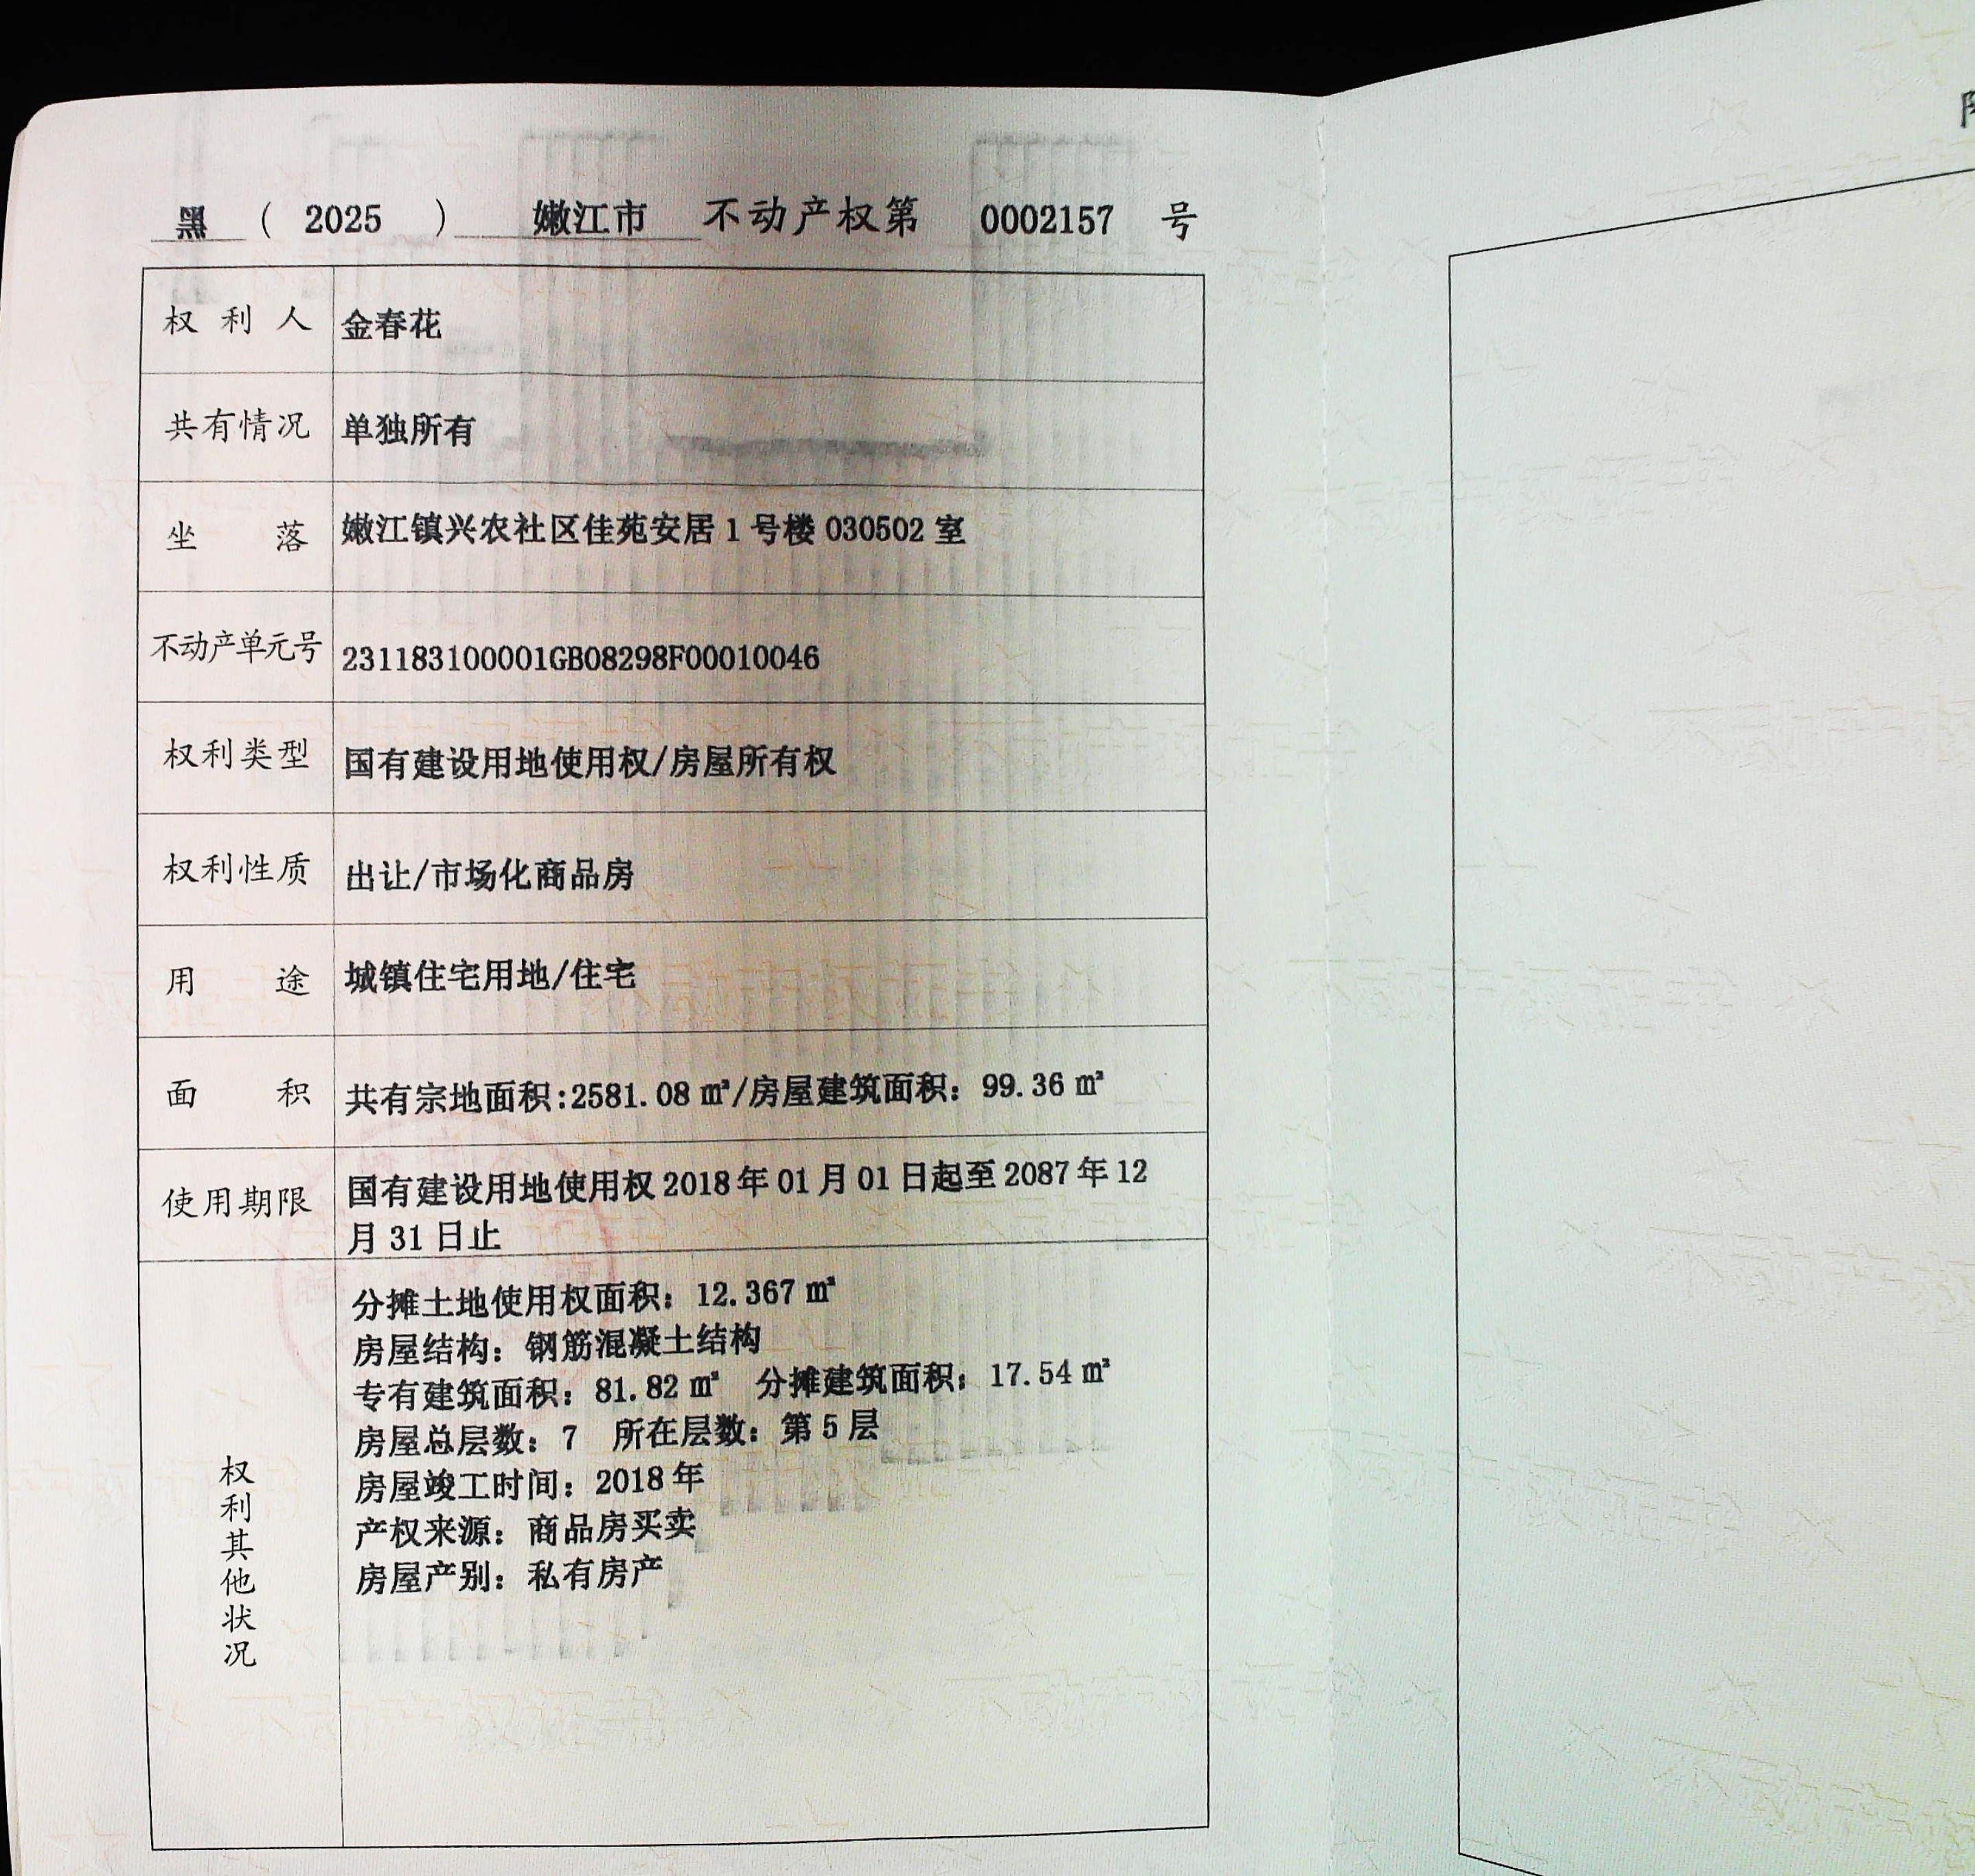 黑 ( 2025 ) 嫩江市 不动产权第 0002157 号
权利人 金春花
共有情况 单独所有
坐落 嫩江镇兴农社区佳苑安居1号楼030502室
不动产单元号 231183100001GB08298F00010046
权利类型 国有建设用地使用权/房屋所有权
权利性质 出让/市场化商品房
用途 城镇住宅用地/住宅
面积 共有宗地面积:2581.08㎡/房屋建筑面积：99.36㎡
使用期限 国有建设用地使用权2018年01月01日起至2087年12
月31日止
权利其他状况
分摊土地使用权面积：12.367㎡
房屋结构：钢筋混凝土结构
专有建筑面积：81.82㎡ 分摊建筑面积：17.54㎡
房屋总层数：7 所在层数：第5层
房屋竣工时间：2018年
产权来源：商品房买卖
房屋产别：私有房产